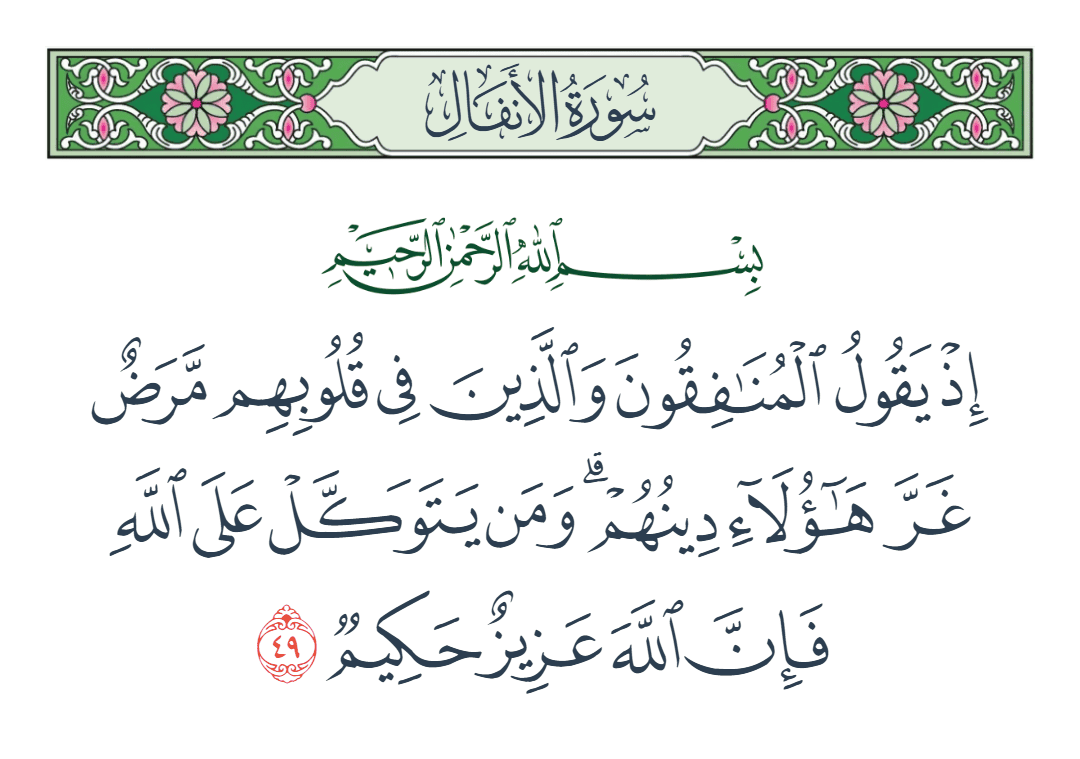 سُورَةُ الأَنفَالِ
بِسۡمِ ٱللَّهِ ٱلرَّحۡمَٰنِ ٱلرَّحِيمِ
إِذۡ يَقُولُ ٱلۡمُنَٰفِقُونَ وَٱلَّذِينَ فِي قُلُوبِهِم مَّرَضٌ
غَرَّ هَٰٓؤُلَآءِ دِينُهُمۡۗ وَمَن يَتَوَكَّلۡ عَلَى ٱللَّهِ
فَإِنَّ ٱللَّهَ عَزِيزٌ حَكِيمٞ ٤٩